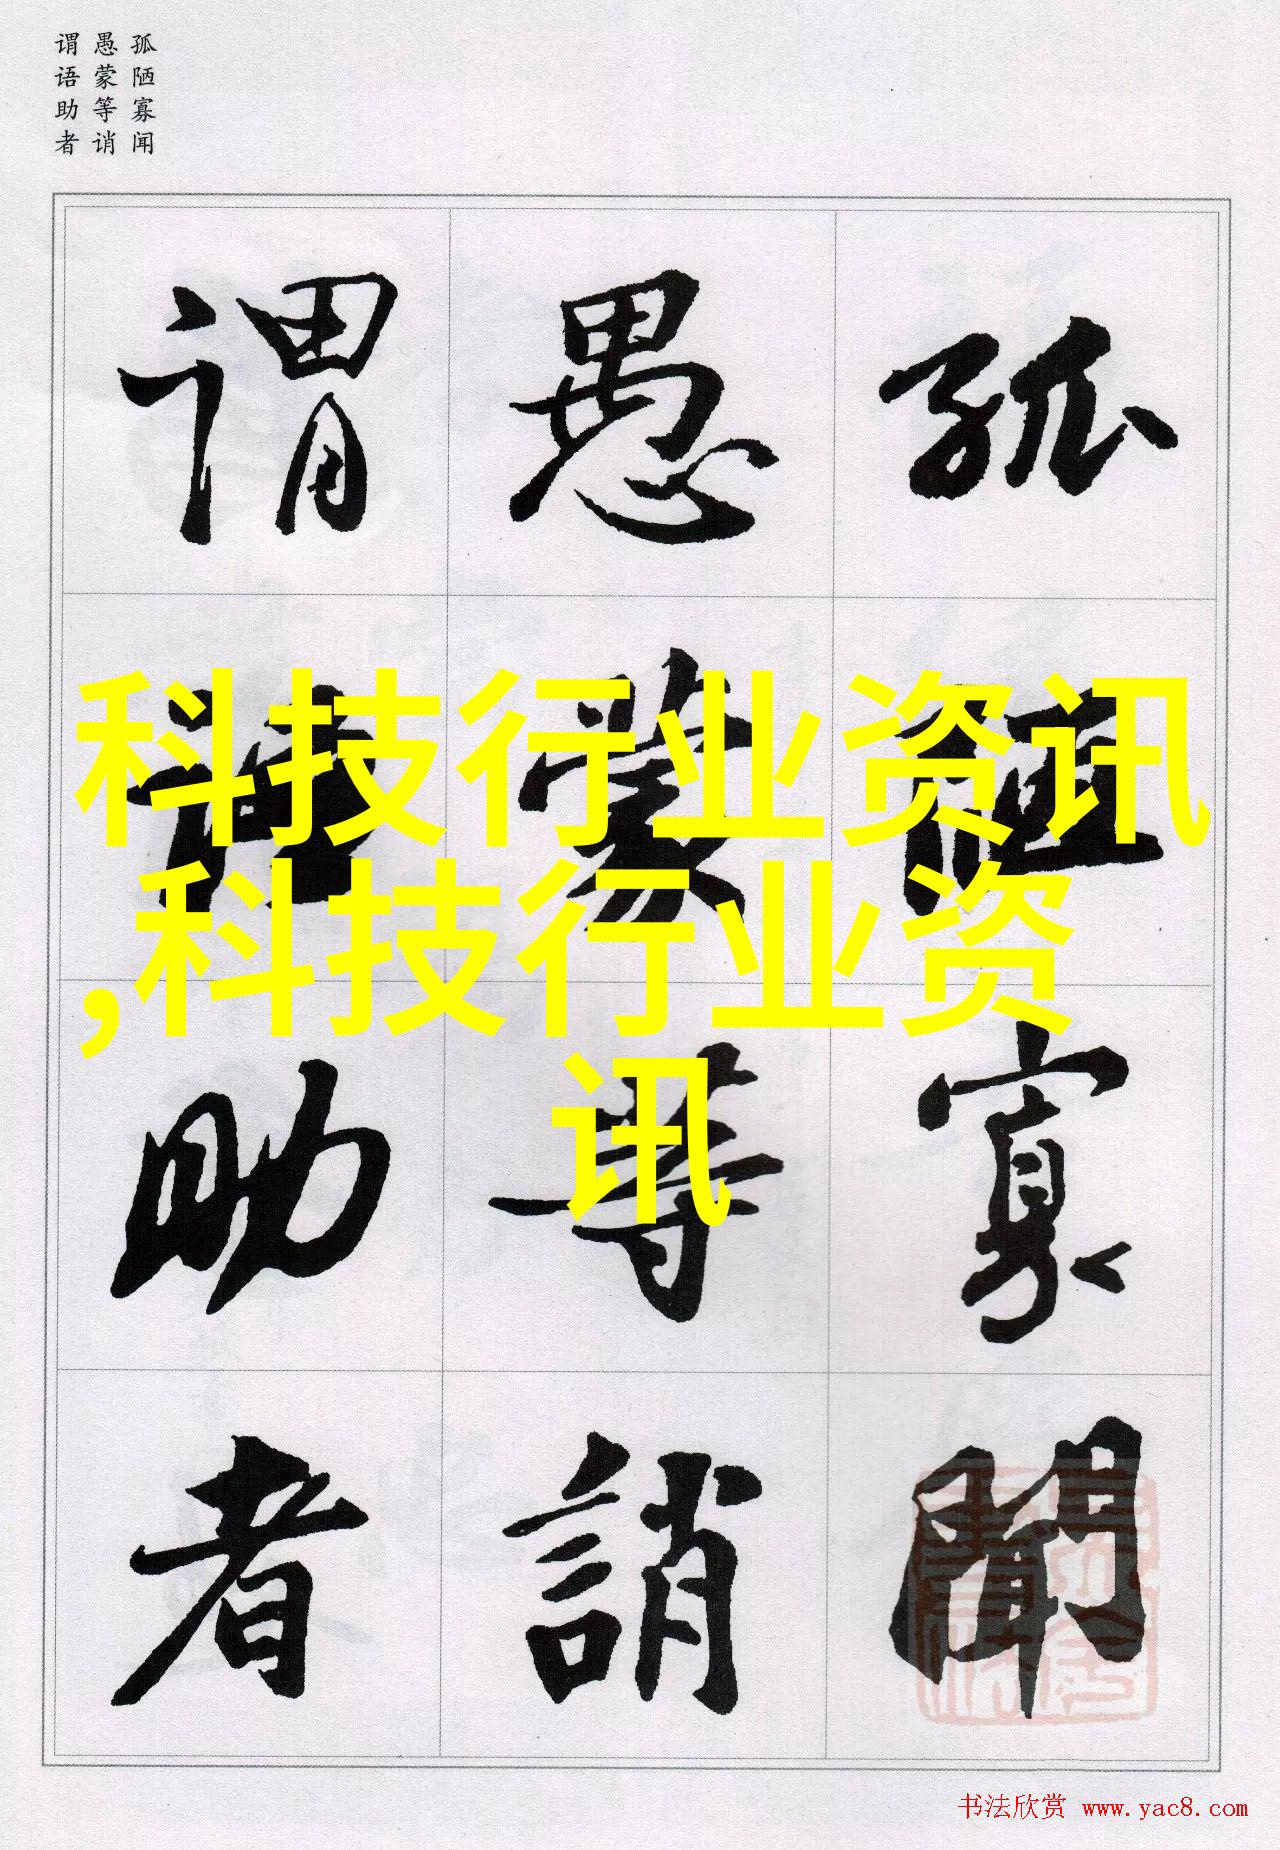 孤陋寡闻
愚蒙等诮
谓语助者
孤陋寡闻
愚蒙等誚
谓语助者
科技行业资讯
,科技行业资
讯
书法欣赏 www.yac8.com